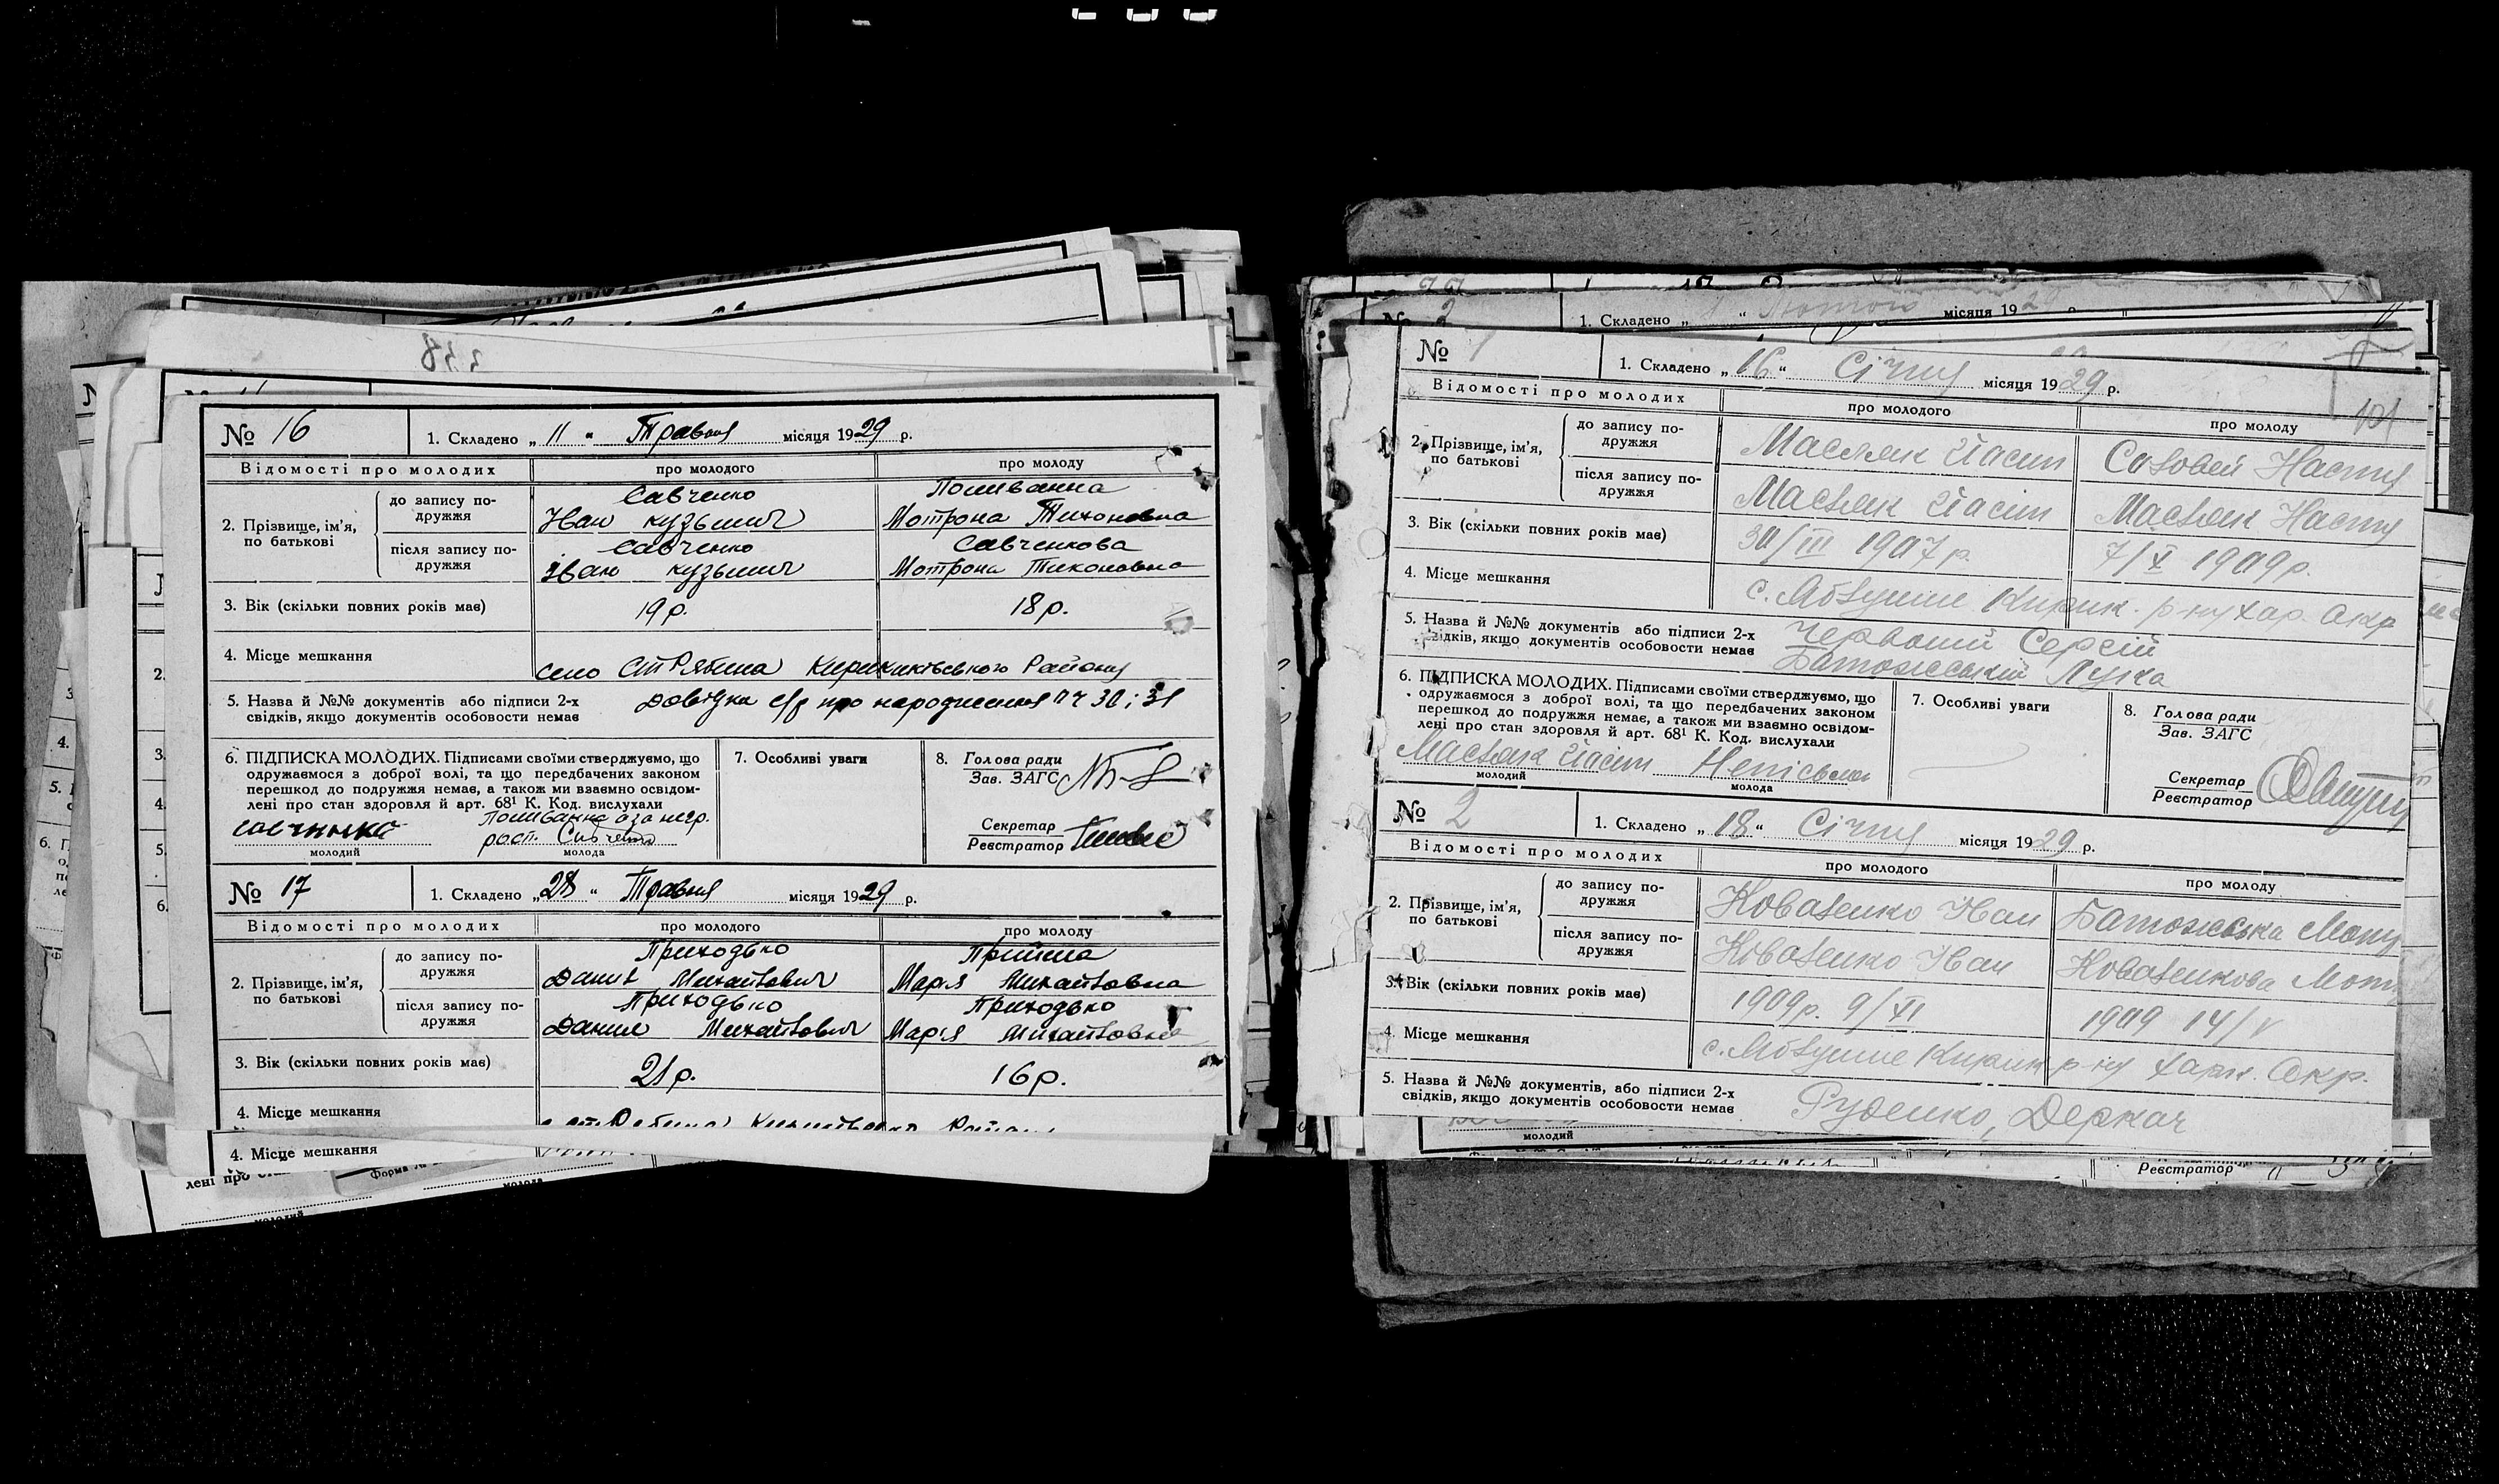 № 16
1. Складено „ 11 “ Травня місяця 1929 р.
Відомості про молодих
про молодого
про молоду
2. Прізвище, ім'я, по батькові
до запису по-
дружжя
Савченко
Іван Кузьмич
Поливанна
Мотрона Тихоновна
після запису по-
дружжя
Савченко
Іван Кузьмич
Савченкова
Мотрона Тихоновна
3. Вік (скільки повних років має)
19 р.
18 р.
4. Місце мешкання
село Ст Рябина Кириківського Району
5. Назва й №№ документів або підписи 2-х
свідків, якщо документів особовости немає
Довідка с/р про народження № 30 і 31
6. ПІДПИСКА МОЛОДИХ. Підписами своїми стверджуємо, що
одружаємося з доброї волі, та що передбачених законом
перешкод до подружжя немає, а також ми взаємно освідом-
лені про стан здоровля й арт. 68¹ К. Код. вислухали
Поливанна а за негр.
рост.
молодий
молода
7. Особливі уваги
8. Голова ради
Зав. ЗАГС
Секретар
Реєстратор
№ 17
1. Складено „ 28 “ Травня місяця 1929 р.
Відомості про молодих
про молодого
про молоду
2. Прізвище, ім'я,
по батькові
до запису по-
дружжя
Приходько
Данил Михайлович
Прийма
Марія Михайловна
після запису по-
дружжя
Приходько
Данил Михайлович
Приходько
Марія Михайловна
3. Вік (скільки повних років має)
21 р.
16 р.
4. Місце мешкання
4. Місце мешкання
лені про
молода
молодий
№ 2
1. Складено „ “ Лютого місяця 1929
№ 1
1. Складено „ 16 “ Січня місяця 1929 р.
101
Відомості про молодих
про молодого
про молоду
2. Прізвище, ім'я,
по батькові
до запису по-
дружжя
Масляк Йосип
Соловей Настя
після запису по-
дружжя
Масляк Йосип
Масляк Настя
3. Вік (скільки повних років має)
30/III 1907 р.
7/X 1909 р.
4. Місце мешкання
с. Яблучне Кирик. р-ну Хар. Окр
5. Назва й №№ документів або підписи 2-х
свідків, якщо документів особовости немає
Червоний Сергій
Батожський Лука
6. ПІДПИСКА МОЛОДИХ. Підписами своїми стверджуємо, що
одружаємося з доброї волі, та що передбачених законом
перешкод до подружжя немає, а також ми взаємно освідом-
лені про стан здоровля й арт. 68¹ К. Код. вислухали
Масляк Йосип
молодий
молода
7. Особливі уваги
8. Голова ради
Зав. ЗАГС
Секретар
Реєстратор
№ 2
1. Складено „ 18 “ Січня місяця 1929 р.
Відомості про молодих
про молодого
про молоду
2. Прізвище, ім'я,
по батькові
до запису по-
дружжя
Коваленко Іван
Батожська
після запису по-
дружжя
Коваленко Іван
Коваленкова
3. Вік (скільки повних років має)
1909 р. 9/XI
1909 14/V
4. Місце мешкання
с. Яблучне Кирик р-ну Харк. Окр.
5. Назва й №№ документів, або підписи 2-х
свідків, якщо документів особовости немає
Руденко, Деркач
молодий
Реєстратор